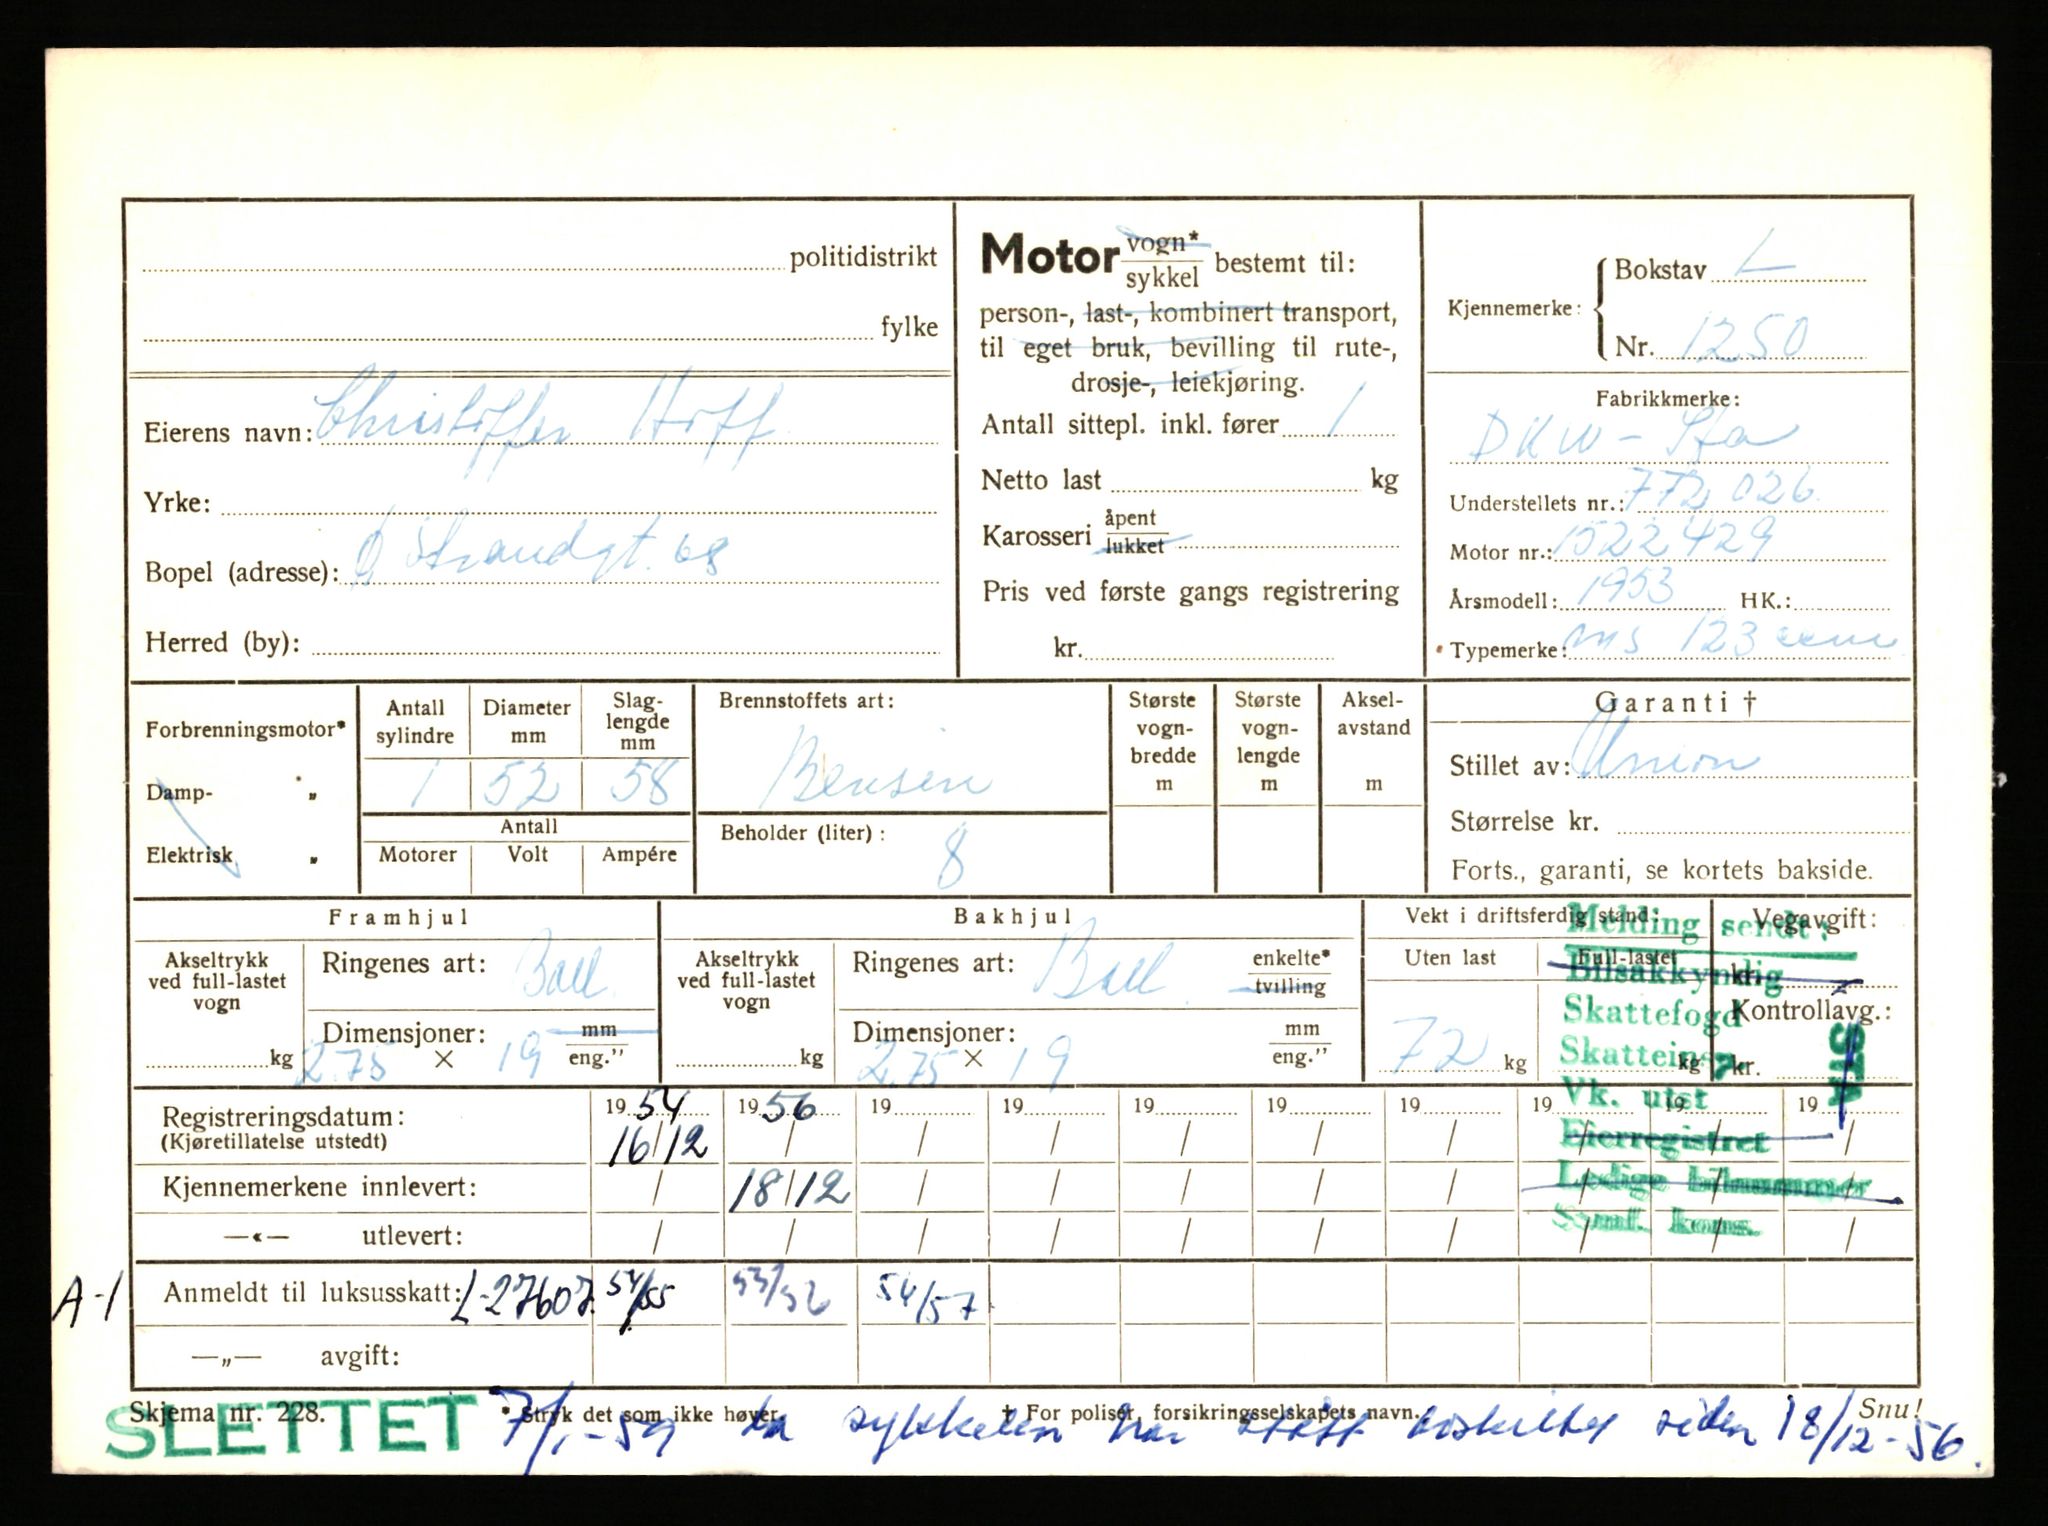 politidistrikt
fylke
Eierens navn: Christoffer Hoff
Yrke:
Bopel (adresse): Ø Strandgt. 68
Herred (by):
Motor vogn*
sykkel bestemt til:
person-, last-, kombinert transport,
til eget bruk, bevilling til rute-,
drosje-, leiekjøring.
Antall sittepl. inkl. fører 1
Netto last kg
Karosseri åpent
lukket
Pris ved første gangs registrering
kr.
Kjennemerke: Bokstav L
Nr. 1250
Fabrikkmerke:
DKW -
Understellets nr.: 772 026
Motor nr.: 1522429
Årsmodell: 1953 HK.:
Typemerke: ms 123 ccm
Forbrenningsmotor*
Damp- „
Elektrisk „
Antall sylindre
Diameter mm
Slag-lengde mm
1 52 58
Antall
Motorer Volt Ampére
Brennstoffets art:
Bensin
Beholder (liter): 8
Største vogn-bredde m
Største vogn-lengde m
Aksel-avstand m
Garanti †
Stillet av: Union
Størrelse kr.
Forts., garanti, se kortets bakside.
Framhjul
Akseltrykk ved full-lastet vogn
kg
Ringenes art: Ball.
Dimensjoner: mm
2.75 × 19 eng."
Bakhjul
Akseltrykk ved full-lastet vogn
kg
Ringenes art: Ball. enkelte*
tvilling
Dimensjoner: mm
2.75 × 19 eng."
Vekt i driftsferdig stand:
Uten last Full-lastet
72 kg kg
Vegavgift:
kr.
Kontrollavg.:
kr.
Melding sendt:
Bilsakkyndig
Skattefogd
Skatteinsp
Vk. utst
Eierregistret
Ledige bilnummer
Saml. kons.
Registreringsdatum: 19 54 19 56 19 19 19 19 19 19 19 19
(Kjøretillatelse utstedt) 16/12 / / / / / / / / /
Kjennemerkene innlevert: / 18/12 / / / / / / / /
—«— utlevert: / / / / / / / / / /
A-1 Anmeldt til luksusskatt: L-27607. 54/55 53/56 54/57
—„— avgift:
Skjema nr. 228. * Stryk det som ikke høver. † For poliser, forsikringsselskapets navn. Snu!
SLETTET 7/1-59 da sykkelen har stått avskiltet siden 18/12-56.